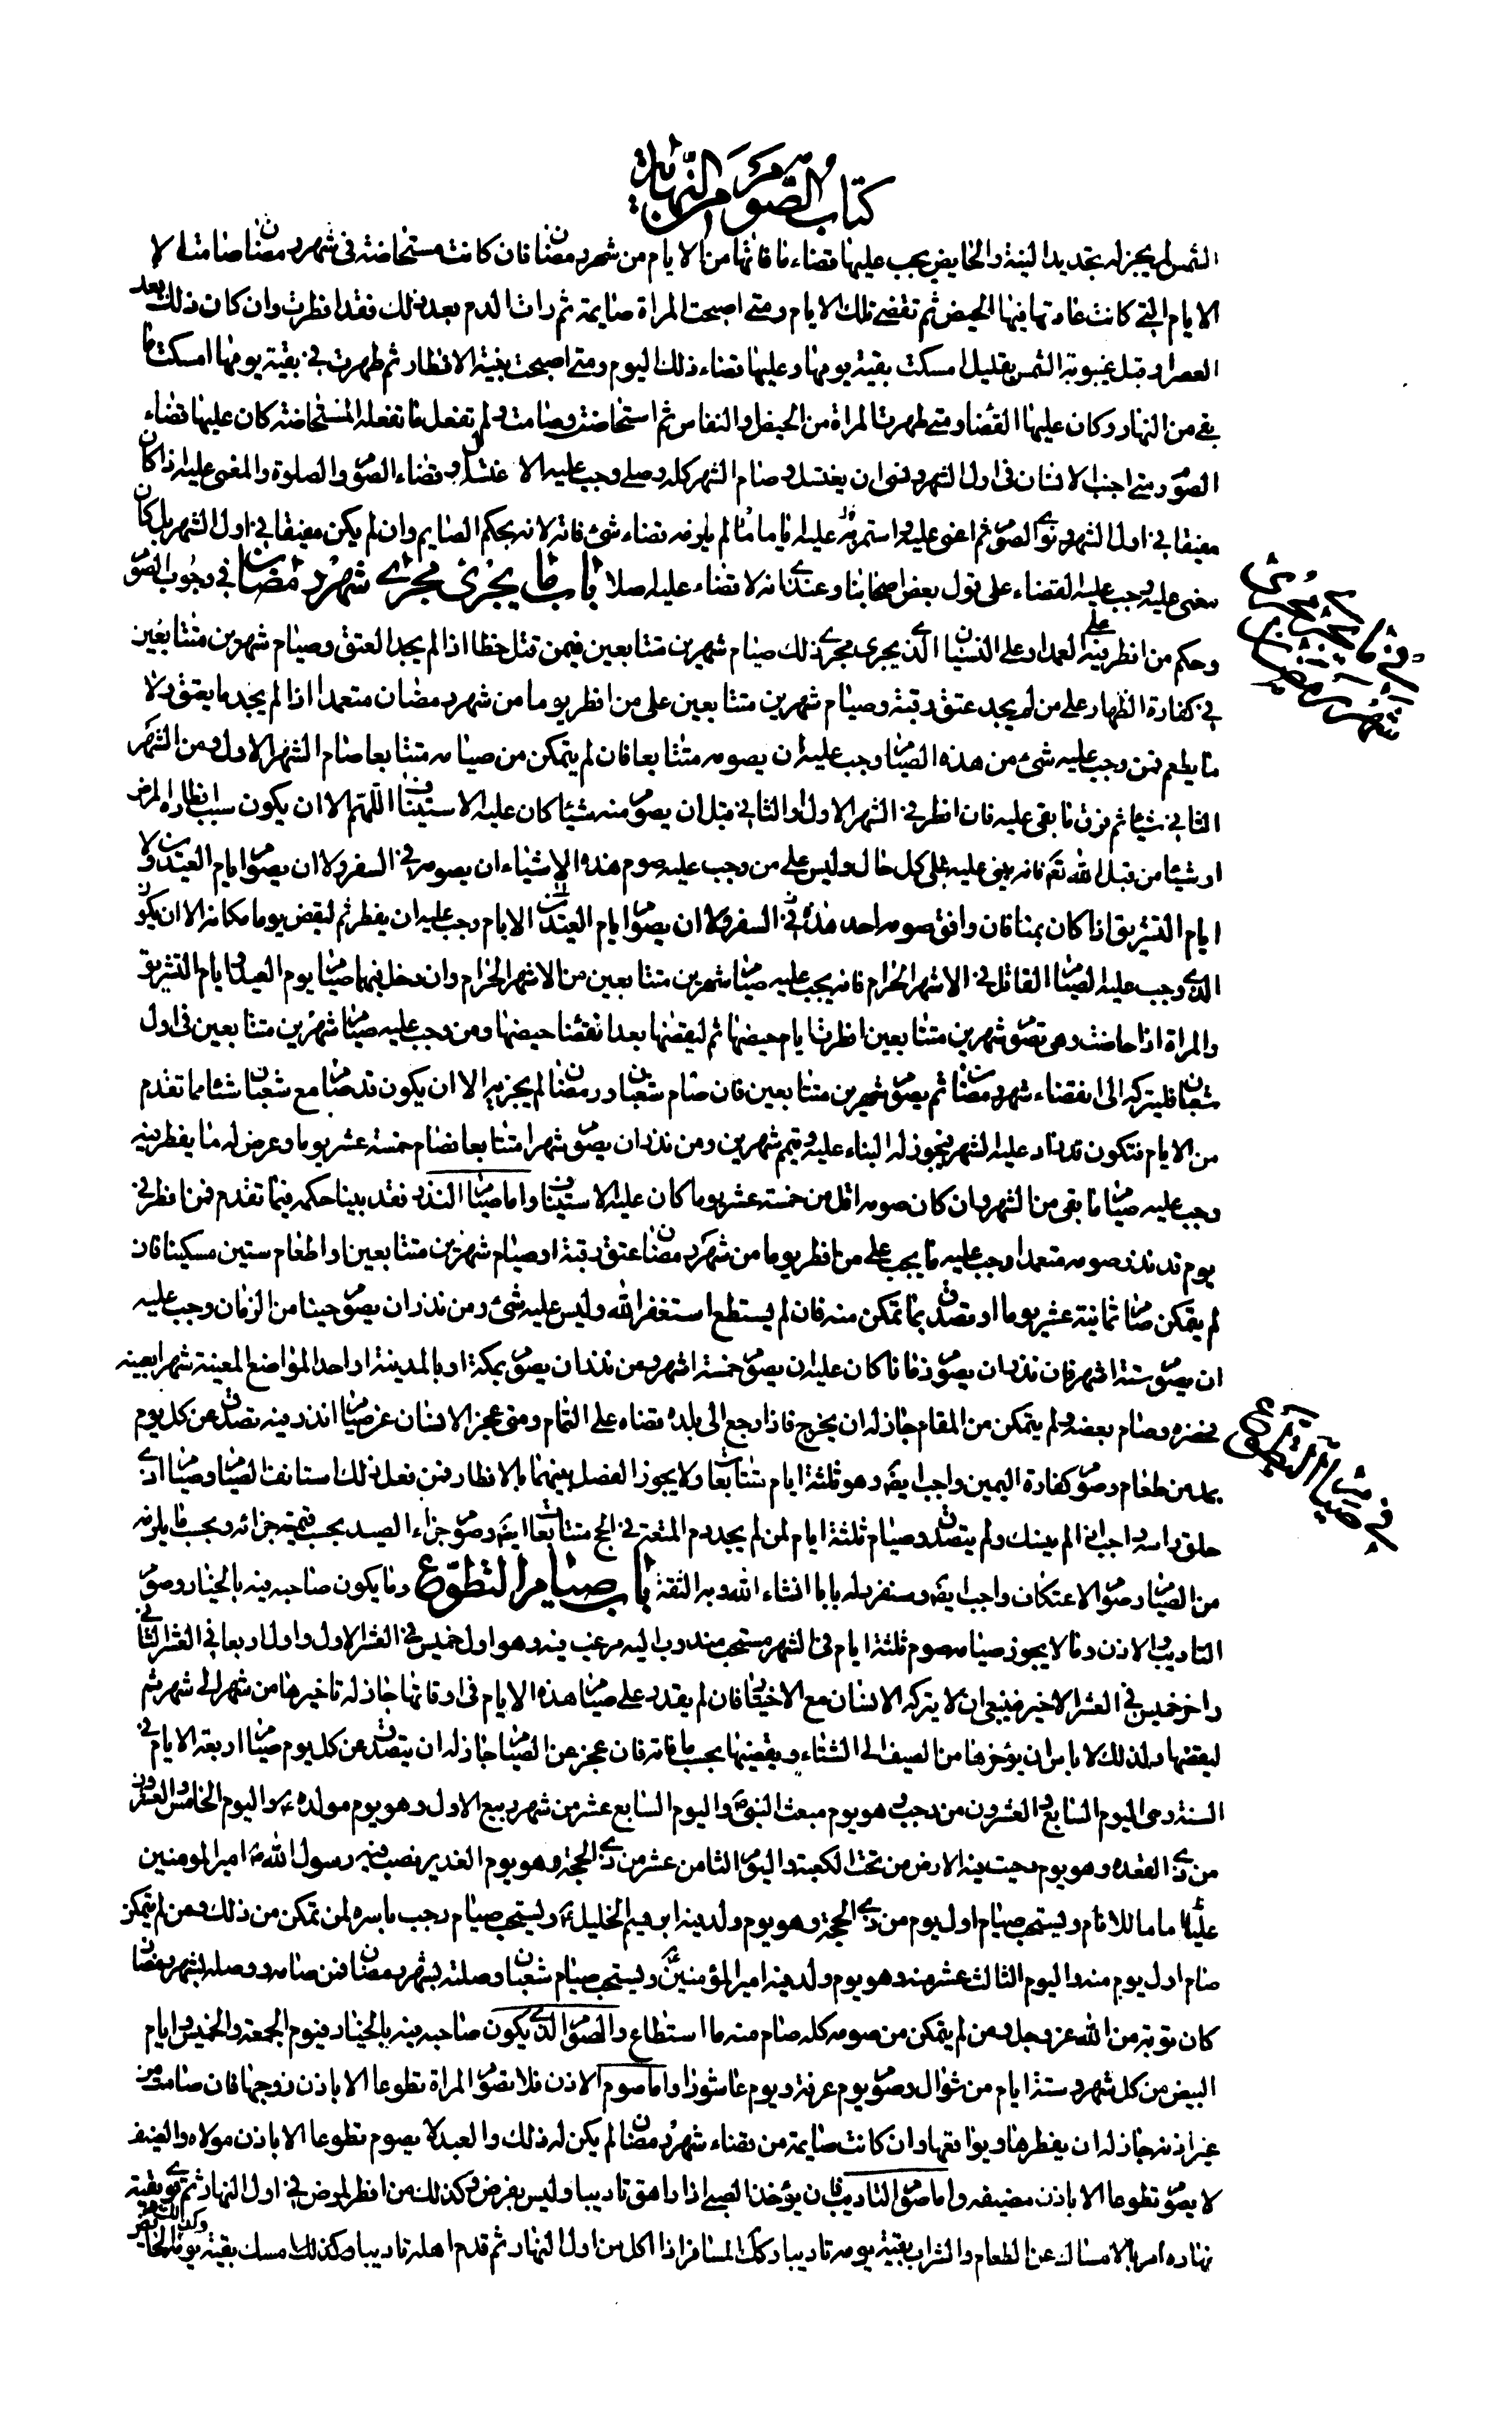 كتاب الصوم من النهاية
الشمس لم يجز له تجديد النية والحايض يجب عليها قضاء ما فاتها من الايام من شهر رمضان فان كانت مستحاضة في شهر رمضان صامت الا
الايام التي كانت عادتها فيها الحيض ثم تقضي تلك الايام ومتى اصبحت المراة صايمة ثم رات الدم بعد ذلك فقد افطرت وان كان ذلك بعد
العصر او قبل غيبوبة الشمس بقليل امسكت بقية يومها وعليها قضاء ذلك اليوم ومتى اصبحت بنية الافطار ثم طهرت في بقية يومها امسكت ما
بقي من النهار وكان عليها القضا ومتى طهرت المراة من الحيض والنفاس ثم استحاضت وصامت ولم تفعل ما تفعله المستحاضة كان عليها قضاء
الصوم ومتى اجنب الانسان في اول الشهر ونسي ان يغتسل وصام الشهر كله وصلى وجب عليه الاغتسال وقضاء الصوم والصلوة والمغمى عليه اذا كان
مفيقا في اول الشهر ونوى الصوم ثم اغمى عليه واستمر به عليه اياما لم يلزمه قضاء شئ فاته لانه بحكم الصايم وان لم يكن مفيقا في اول الشهر بل كان
مغمى عليه وجب عليه القضاء على قول بعض اصحابنا وعندي انه لا قضاء عليه اصلا باب ما يجري مجرى شهر رمضان في وجوب الصوم
وحكم من افطر فيه على العمد او على النسيان الذي يجري مجرى ذلك صيام شهرين متتابعين فيمن قتل خطا اذا لم يجد العتق وصيام شهرين متتابعين
في كفارة الظهار على من لم يجد عتق رقبة وصيام شهرين متتابعين على من افطر يوما من شهر رمضان متعمدا اذا لم يجد ما يعتق ولا
ما يطعم فمن وجب عليه شئ من هذه الصيام وجب عليه ان يصومه متتابعا فان لم يتمكن من صيامه متتابعا صام الشهر الاول ومن الشهر
الثاني شيئا ثم فرق ما بقي عليه فان افطر في الشهر الاول او الثاني قبل ان يصوم منه شيئا كان عليه الاستيناف اللهم الا ان يكون سبب افطاره المرض
او شيئا من قبل الله تع فانه يبني عليه على كل حال وليس على من وجب عليه صوم هذه الاشياء ان يصومه في السفر ولا ان يصوم ايام العيدين ولا
ايام التشريق اذا كان بمنا فان وافق صومه احد هذه في السفر ولا ان يصوم ايام العيدين الايام وجب عليه ان يفطر ثم ليقض يوما مكانه الا ان يكون
الذي وجب عليه الصيام القاتل في الاشهر الحرام فانه يجب عليه صيام شهرين متتابعين من الاشهر الحرام وان دخل فيهما صيام يوم العيد او ايام التشريق
والمراة اذا حاضت وهي تصوم شهرين متتابعين افطرت ايام حيضها ثم ليقضها بعد انقضا حيضها ومن وجب عليه صيام شهرين متتابعين في اول
شعبان فليتركه الى انقضاء شهر رمضان ثم يصوم شهرين متتابعين فان صام شعبان ورمضان لم يجزيه الا ان يكون قد صام مع شعبان شئا مما تقدم
من الايام فتكون قد زاد عليه الشهر فيجوز له البناء عليه ويتمم شهرين ومن نذر ان يصوم شهرا متتابعا فصام خمسة عشر يوما وعرض له ما يفطر فيه
وجب عليه صيام ما بقي من الشهر وان كان صومه اقل من خمسة عشر يوما كان عليه الاستيناف واما صيام النذر فقد بينا حكمه فيما تقدم فمن افطر في
يوم قد نذر صومه متعمدا وجب عليه ما يجب على من افطر يوما من شهر رمضان عتق رقبة او صيام شهرين متتابعين او اطعام ستين مسكينا فان
لم يتمكن صام ثمانية عشر يوما او تصدق بما تمكن منه فان لم يستطع استغفر الله وليس عليه شئ ومن نذر ان يصوم حينا من الزمان وجب عليه
ان يصوم ستة اشهر فان نذر ان يصوم زمانا كان عليه ان يصوم خمسة اشهر ومن نذر ان يصوم بمكة او بالمدينة او احد المواضع المعينة شهرا بعينه
فحضره وصام بعضه ولم يتمكن من المقام جاز له ان يخرج فاذا رجع الى بلده قضاه على التمام ومتى عجز الانسان عن صيام ما نذر فيه تصدق عن كل يوم
بمد من طعام وصوم كفارة اليمين واجب ايضا وهو ثلثة ايام متتابعا ولا يجوز الفصل بينهما بالافطار فمن فعل ذلك استانف الصيام وصيام اذى
حلق راسه واجب اذا لم ينسك ولم يتصدق وصيام ثلثة ايام لمن لم يجد دم المتعة في الحج متتابعا ايضا وصوم جزاء الصيد يجب قيمة جزائه ويجب ما يلزمه
من الصيام وصوم الاعتكاف واجب ايضا وسنفرد له بابا انشاء الله وبه الثقة باب صيام التطوع وما يكون صاحبه فيه بالخيار وصوم
التاديب والاذن وما لا يجوز صيامه صوم ثلثة ايام في الشهر مستحب مندوب اليه مرغب فيه وهو اول خميس في العشر الاول واول اربعا في العشر الثاني
واخر خميس في العشر الاخير فينبغي ان لا يتركه الانسان مع الاختيار فان لم يقدر على صيام هذه الايام في اوقاتها جاز له تاخيرها من شهر الى شهر ثم
ليقضها ولذلك لا باس ان يؤخرها من الصيف الى الشتاء ويقضيها بحسب ما فاته فان عجز عن الصيام جاز له ان يتصدق عن كل يوم صيام اربعة الايام في
السنة وهي اليوم السابع والعشرون من رجب وهو يوم مبعث النبي ص واليوم السابع عشر من شهر ربيع الاول وهو يوم مولده ع واليوم الخامس والعشرون
من ذي القعده وهو يوم دحيت فيه الارض من تحت الكعبة واليوم الثامن عشر من ذي الحجة وهو يوم الغدير نصب فيه رسول الله ص امير المومنين
عليا ع اماما للانام ويستحب صيام اول يوم من ذي الحجة وهو يوم ولد فيه ابرهيم الخليل ع ويستحب صيام رجب باسره لمن تمكن من ذلك ومن لم يتمكن
صام اول يوم منه واليوم الثالث عشر منه وهو يوم ولد فيه امير المؤمنين ع ويستحب صيام شعبان وصلته بشهر رمضان فمن صامه ووصله بشهر رمضان
كان توبة من الله عز وجل ومن لم يتمكن من صومه كله صام منه ما استطاع والصوم الذي يكون صاحبه فيه بالخيار فيوم الجمعة والخميس وايام
البيض من كل شهر وستة ايام من شوال وصوم يوم عرفة ويوم عاشورا واما صوم الاذن فلا تصوم المراة تطوعا الا باذن زوجها فان صامت من
غير اذنه جاز له ان يفطرها ويواقعها وان كانت صايمة من قضاء شهر رمضان لم يكن له ذلك والعبد لا يصوم تطوعا الا باذن مولاه والضيف
لا يصوم تطوعا الا باذن مضيفه واما صوم التاديب فان يؤخذ الصبي اذا راهق تاديبا وليس بفرض وكذلك من افطر لمرض في اول النهار ثم قوي بقية
نهاره امر بالامساك عن الطعام والشراب بقية يومه تاديبا وكذلك المسافر اذا اكل من اول النهار ثم قدم اهله تاديبا وكذلك امسك بقية يومه
في ما يجري مجرى
شهر رمضان
في
صيام التطوع